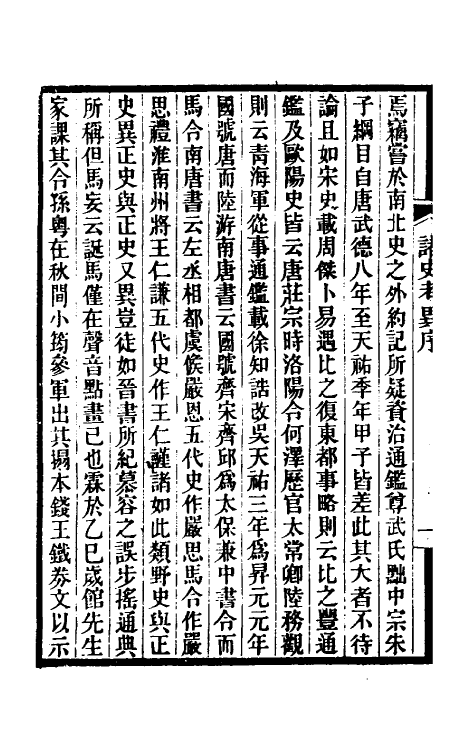 焉竊嘗於南北史之外約記所疑資治通鑑尊武氏黜中宗朱
子綱目自唐武德八年至天祐季年甲子皆差此其大者不待
論且如宋史載周傑卜易遇比之復東都事略則云比之豐通
鑑及歐陽史皆云唐莊宗時洛陽令何澤歷官太常卿陸務觀
則云青海軍從事通鑑載徐知誥改吳天祐三年為昇元元年
國號唐而陸游南唐書云國號齊宋齊邱為太保兼中書令而
馬令南唐書云左丞相都虞候嚴恩五代史作嚴思馬令作嚴
思禮淮南州將王仁謙五代史作王仁謹諸如此類野史與正
史異正史與正史又異豈徒如晉書所紀慕容之誤步搖通典
所稱但馬妄云誕馬僅在聲音點畫已也霖於乙巳歲館先生
家課其令孫粵在秋間小筠參軍出其搨本錢王鐵券文以示
諸史考異序
一